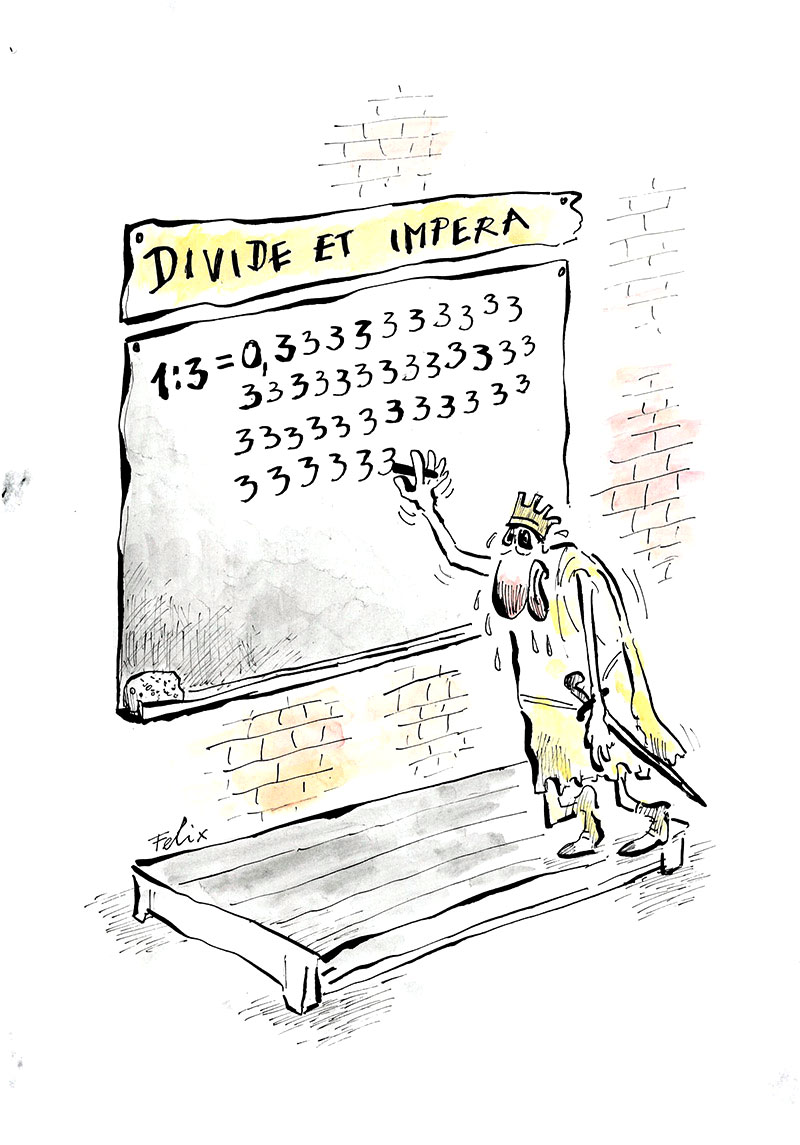 DIVIDE ET IMPERA
1:3=0,3333333333
3333333333333
333333333333
333333
Felix